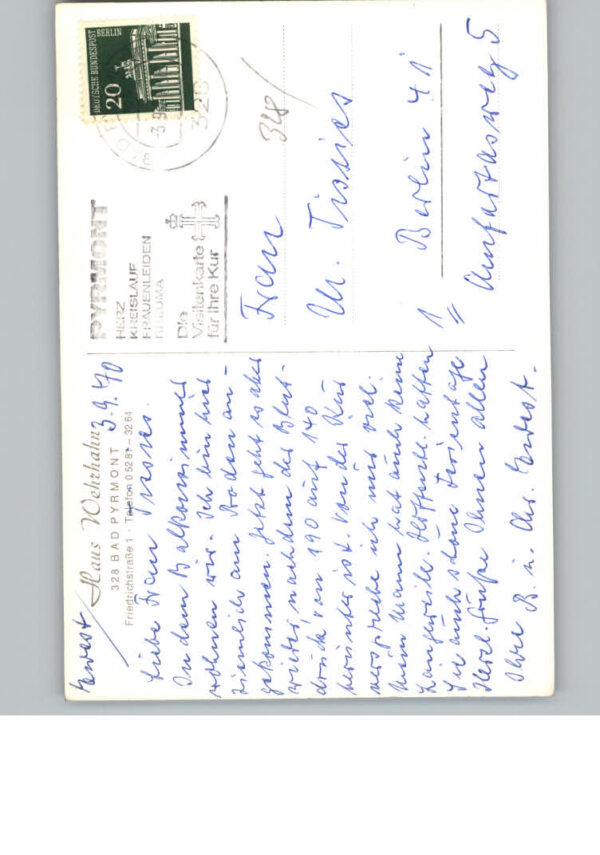 Ewest
Haus Wehrhahn
328 BAD PYRMONT
Friedrichstraße 1 · Telefon 05281-3264
3.9.70
Liebe Frau Tissies.
In dem Balkonzimmer
wohnen wir. Ich bin hier
ziemlich am Boden an-
gekommen. Jetzt geht es aber
weiter nachdem der Blut-
druck von 190 auf 140
herunter ist. Von der Kur
verspreche ich mir viel.
Mein Mann hat auch keine
Langeweile. Hoffentl. hatten
Sie auch schöne Ferientage
Herzl. Grüße Ihnen allen
Ihre B. u. Chr. Ewest.
DEUTSCHE BUNDESPOST
BERLIN
20
PYRMONT
HERZ
KREISLAUF
FRAUENLEIDEN
RHEUMA
Die
Visitenkarte
für Ihre Kur
348/
Frau
M. Tissies
1 Berlin 41
Amfortasweg 5